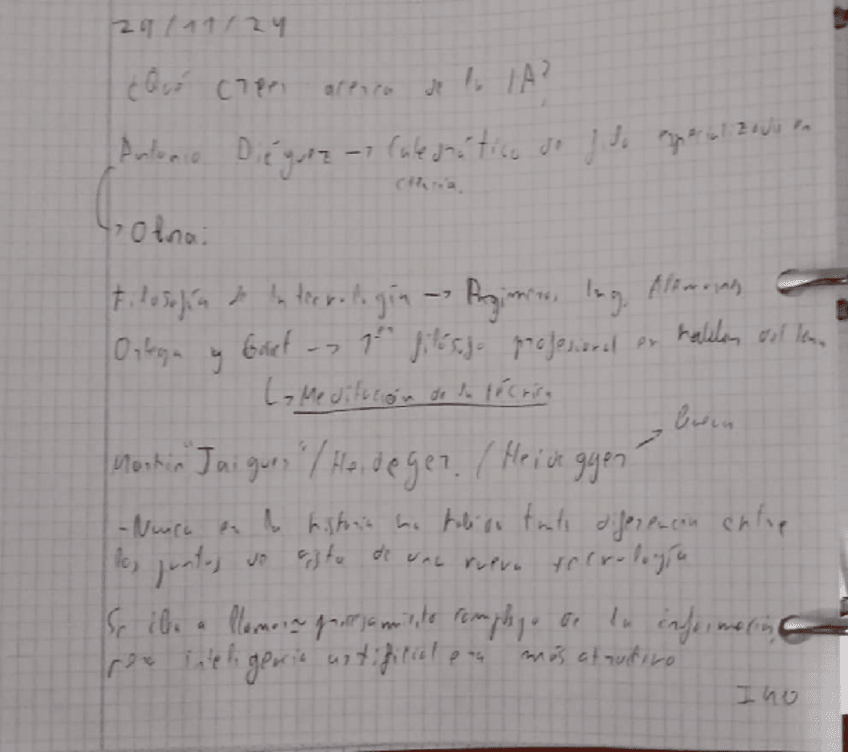 29/11/24
¿Qué crees acerca de la IA?
Antonio Diéguez -> Catedrático de filo especializado en
ciencia.
-> Obra:
Filosofía de la tecnología -> Ing. Alemanes
Ortega y Gaset -> 1er filósofo profesional en hablar del tema
-> Meditación de la técnica
Buena
Martin "Jaiguer" / Heideger. / Heideggyer
- Nunca en la historia ha habido tanta diferencia entre
los juntos de esto de una nueva tecnología
Se iba a llamar procesamiento complejo de la información,
pero inteligencia artificial era más atractivo